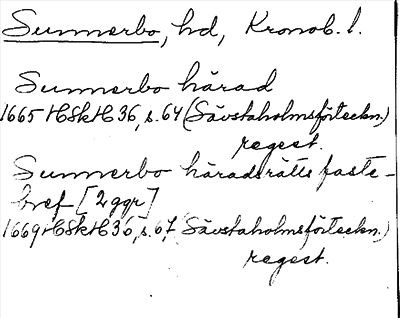 Sunnerbo, hd, Kronob. l.
Sunnerbo härad
1665 HSkH 36, s. 64 (Sävstaholmsförteckn.)
regest.
Sunnerbo häradsrätts faste-
bref [2 ggr]
1669 HSkH 36, s. 67, (Sävstaholmsförteckn.)
regest.